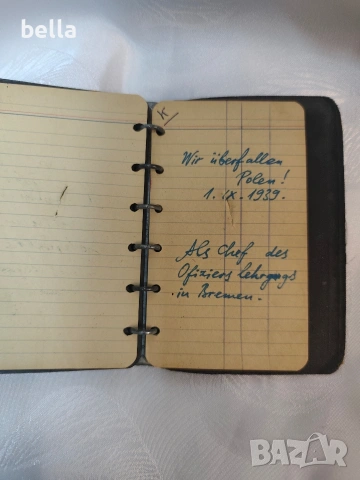 bella
K
Wir überfallen
Polen!
1. IX. 1939.
Als Chef des
Ofiziers lehrgags
in Bremen.
BAZAR